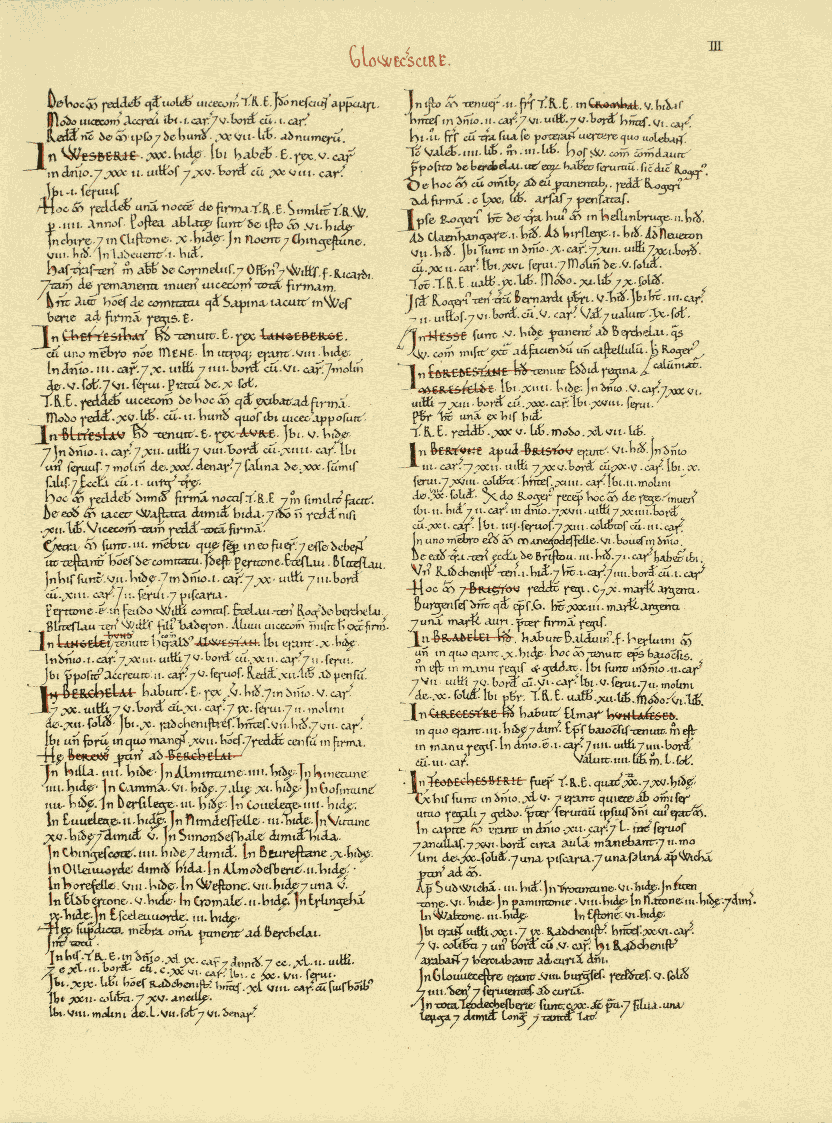 GLOWECSCIRE.
III
De hoc m̄ reddeb qđ voleb vicecom T.R.E. Ido nesciuꝰ app̄ciari.
Modo vicecom accreu ibi .i. car̄ ⁊ v. borđ cū .i. car̄.
Redđ n̄c de m̄ ipso ⁊ de hund . xx vii. lib. ad numerū.
In WESBERIE . xxx. hidę. Ibi habeb . E. rex . v. car̄
in dnio . ⁊ xxx ii. uiłłos ⁊ xv. borđ cū xx viii. car̄.
Ibi .i. seruus.
Hoc m̄ reddeb unā noctē de firma T.R.E. Similit T.R.W.
p . iiii. annos . Postea ablatę sunt de isto m̄ . vi. hidę
In chire . ⁊ in Cliftone . x. hidę. In Noent ⁊ Chingestune.
viii. hiđ. In Ladeuent .i. hiđ.
Has tras ten m̄ abb de Cormelies . ⁊ Osbn ⁊ Wiłłs . f. Ricardi.
⁊ tam de remanenti inuen vicecom totā firmam.
Dnt aut hoes de comitatu qđ Sapina iacuit in Wes
berie ad firmā regis . E.
In CHESTESIHAT hđ tenuit . E. rex LANGEBERGE.
cū uno mēbro noe MENE. In utroq; erant . viii. hidę.
In dnio . iii. car̄ . ⁊ x. uiłłi ⁊ iiii. borđ cū vi. car̄ . ⁊ molin
de . v. soł . ⁊ vi. serui. Pratū de . x. soł.
T.R.E. reddeb vicecom de hoc m̄ qđ exibat ad firmā.
Modo redđ . xv. lib. cū .ii. hund quos ibi vicec apposuit.
In BLITESLAU hđ tenuit . E. rex AVRE. Ibi . v. hidę
⁊ In dnio .i. car̄ . ⁊ xii. uiłłi ⁊ viii. borđ cū xiiii. car̄. Ibi
un seruus . ⁊ molin de . xxx. denar̄ . ⁊ salina de . xxx. sumis
salis . ⁊ Eccła cū .i. virg tręę.
Hoc m̄ reddeb dimiđ firmā noctis T.R.E ⁊ m̄ similit facit.
De eođ m̄ iacet Wastata dimiđ hida . ⁊ ido n̄ redđ nisi
. xii. lib. Vicecom tam redđ totā firmā.
Extra m̄ sunt . iii. mēbra que sēp in eo fuer̄ . ⁊ esse debent
ut testant hoes de comitatu. Idest Peritone. Eteslau. Bliteslau.
In his sunt . vii. hidę . ⁊ in dnio .i. car̄ . ⁊ xx. uiłłi ⁊ iii. borđ
cū . xiii. car̄ . ⁊ ii. serui . ⁊ piscaria.
Peritone . ē in feudo Wiłłi comitis. Etelau ten Roḡ de berchelai.
Bliteslau ten Wiłłs filiꝰ baderon. Aliū vicecom misit hę ext firm.
In LANGELEI hund tenuit herałd com ALWESTAN. Ibi erant . x. hidę.
In dnio .i. car̄ . ⁊ xx iii. uiłłi ⁊ v. borđ cū . xx ii. car̄ . ⁊ ii. serui.
Ibi p̄posit accreuit .ii. car̄ . ⁊ v. seruos. Redđ . xii. lib. ad pensū.
In BERCHELAI habuit . E. rex . v. hiđ . ⁊ in dnio . v. car̄
⁊ xx. uiłłi ⁊ v. borđ cū xi. car̄ . ⁊ ix. serui ⁊ ii. molini
de . xii. soliđ. Ibi . x. radchenistres . hntes . vii. hiđ . ⁊ vii. car̄.
Ibi un forū in quo manen . xvii. hoes . ⁊ reddt censū in firma.
Hę BEREW ptin ad BERCHELAI.
In hilla . iiii. hidę. In Almintune . iiii. hidę. In hinetune
iiii. hidę. In Camma . vi. hidę . ⁊ alię . xi. hidę. In Gosintune
iiii. hidę. In Dersilege . iii. hidę. In Couelege . iiii. hidę.
In Euuelege . ii. hidę. In Nimdesfelle . iii. hidę. In Vutune
xv. hidę . ⁊ dimiđ v. In Simondeshale dimiđ hida.
In Chingescote . iiii. hidę ⁊ dimiđ. In Beurestane . x. hidę.
In Olleuuorde dimiđ hida. In Almodesberie . ii. hidę.
In horefelle . viii. hidę. In Westone . vii. hidę ⁊ una v.
In Eldbertone . v. hidę. In Cromale . ii. hidę. In Erlingehā
ix. hidę. In Esceleuuorde . iii. hidę.
Hęc sup̄dicta mēbra oma ptinent ad Berchelai.
Int totū.
In his . T.R.E. in dnio . xl ix. car̄ ⁊ dimiđ . ⁊ cc. xl. ii. uiłłi.
⁊ c xl. ii. borđ cū . c. xx vi. car̄. Ibi . c. xx. vii. serui.
Ibi . x ix. libi hoes Radchenistr hntes . xl viii. car̄ cū suis hoibꝰ
Ibi . xxii. coliƀti . ⁊ xv. ancillę.
Ibi . viii. molini de . L. vii. soł ⁊ vi. denar̄.
In isto m̄ tenuer̄ . ii. frs T.R.E. in Cromhal . v. hidas
hntes in dnio . ii. car̄ . ⁊ vi. uiłłi . ⁊ v. borđ hntes . vi. car̄.
Hi . ii. frs cū tra sua se poteran vertere quo voleban.
Tc valeb . iiii. lib. m̄ . iii. lib. Hos W. com com̄dauit
p̄posito de berchelai . ut eoꝝ haberet seruitiū . sic dic Roger.
De hoc m̄ cū omibꝫ ad eū ptinentibꝫ . redđ Rogerꝰ
ad firmā . c lxx. lib. arsas ⁊ pensatas.
Ipse Rogerꝰ ht de tra huꝰ m̄ in heslinbruge . ii. hiđ.
Ad Claenhangare . i. hiđ. Ad hirslege . i. hiđ. Ad Neueton
vii. hiđ. Ibi sunt in dnio . x. car̄ . ⁊ xiii. uiłłi ⁊ xxi. borđ.
cū . xx ii. car̄. Ibi . xvi. serui . ⁊ Molin de . v. soliđ.
Tot T.R.E. ualb . ix. lib. Modo . xi. lib ⁊ x. soliđ.
Isđ Rogerꝰ ten trā Bernardi pbri . v. hiđ. Ibi ht . iii. car̄
⁊ ii. uiłłos . ⁊ vi. borđ cū . v. car̄. Vał ⁊ ualuit . lx. soł.
In NESSE sunt . v. hidę ptinent ad Berchelai . qs
W. com misit ext ad faciendū un castellulū. Hę Rogerꝰ calūniat.
In EDREDESTANE hđ tenuit Eddid regina
MERESFELDE. Ibi . xiiii. hidę. In dnio . v. car̄ . ⁊ xx vi.
uiłłi ⁊ xiii. borđ cū . xxx. car̄. Ibi . xviii. serui.
Pbr ht unā ex his hiđ.
T.R.E. reddb . xxx v. lib. modo . xl vii. lib.
In BERTVNE apud BRISTOV erant . vi. hiđ. In dnio
. iii. car̄ . ⁊ xx ii. uiłłi ⁊ xx v. borđ cū xx v. car̄. Ibi . ix.
serui . ⁊ xx viii. coliƀti . hntes . xiiii. car̄. Ibi . ii. molini
de . xx vii. soliđ. Qđo Rogerꝰ recep̄ hoc m̄ de rege . inuen
ibi . ii. hiđ ⁊ ii. car̄ in dnio . ⁊ xvii. uiłłi ⁊ xx iiii. borđ
cū . xx i. car̄. Ibi . iiii. seruos ⁊ xiii. coliƀtos cū . iii. car̄.
In uno mēbro eiđ m̄ Manegodesfelle . vi. boues in dnio.
De eađ tra ten eccła de Bristou . iii. hiđ . ⁊ i. car̄ habet ibi.
Vn Radchenist ten . i. hiđ . ⁊ ht . i. car̄ ⁊ iiii. borđ cū . i. car̄
Hoc m̄ ⁊ BRISTOV reddt regi . c ⁊ x. mark argenti.
Burgenses dnt qđ eps . G. ht . xxx iii. mark argenti
⁊ unā mark auri . p̄ter firmā regis.
In BRADELEI hđ habuit Balduin . f. herluini m̄
un in quo erant . x. hidę. Hoc m̄ tenuit eps baiocsis.
m̄ est in manu regis ⁊ geldat. Ibi sunt in dnio . ii. car̄
⁊ vii. uiłłi ⁊ v. borđ cū . vi. car̄. Ibi . v. serui . ⁊ ii. molini
de . xx. soliđ. Ibi pbr. T.R.E. ualb . xii. lib. Modo . vi. lib.
In CIRECESTRE hđ habuit Elmar HUNLAFESED.
in quo erant . iii. hidę ⁊ dim. Eps baiocsis tenuit . m̄ est
in manu regis. In dnio . ē . i. car̄ . ⁊ iiii. uiłłi ⁊ iiii. borđ
cū . iii. car̄. Valuit . iii. lib. m̄ . L. soł.
In TEODECHESBERIE fuer̄ T.R.E. quat̄ xx. ⁊ xv. hidę.
Ex his sunt in dnio . xl. v. ⁊ erant quietę ab omi ser
uitio regali ⁊ geldo . p̄ter seruitiū ipsius dni cuiꝰ erat m̄.
In capite m̄ erant in dnio . xii. car̄ . ⁊ L. inte seruos
⁊ ancillas . ⁊ xvi. borđ circa aulā manebant . ⁊ ii. mo
lini de . xx. soliđ . ⁊ una piscaria . ⁊ una salina ap̄ Wicha
ptin ad m̄.
Ap̄ Sudwicha . iii. hiđ. In Trotintune . vi. hidę. In Fiten
tone . vi. hidę. In pamintonie . viii. hidę. In Natone . iii. hidę . ⁊ dim.
In Waltone . iii. hidę. In Estone . vi. hidę.
Ibi erant uiłłi xxi. ⁊ ix. Radchenist . hntes . xx vi. car̄.
⁊ v. coliƀti ⁊ un borđ cū . v. car̄. Hi Radchenist
araban ⁊ herciabant ad curiā dni.
In Glouuecestre erant . viii. burgses . reddtes . v. soliđ
⁊ iiii. den ⁊ seruientes ad curiā.
In tota Teodechesberie sunt . c xx. ac p̄ti . ⁊ silua una
leuga ⁊ dimiđ longꝭ ⁊ tantđ lat.